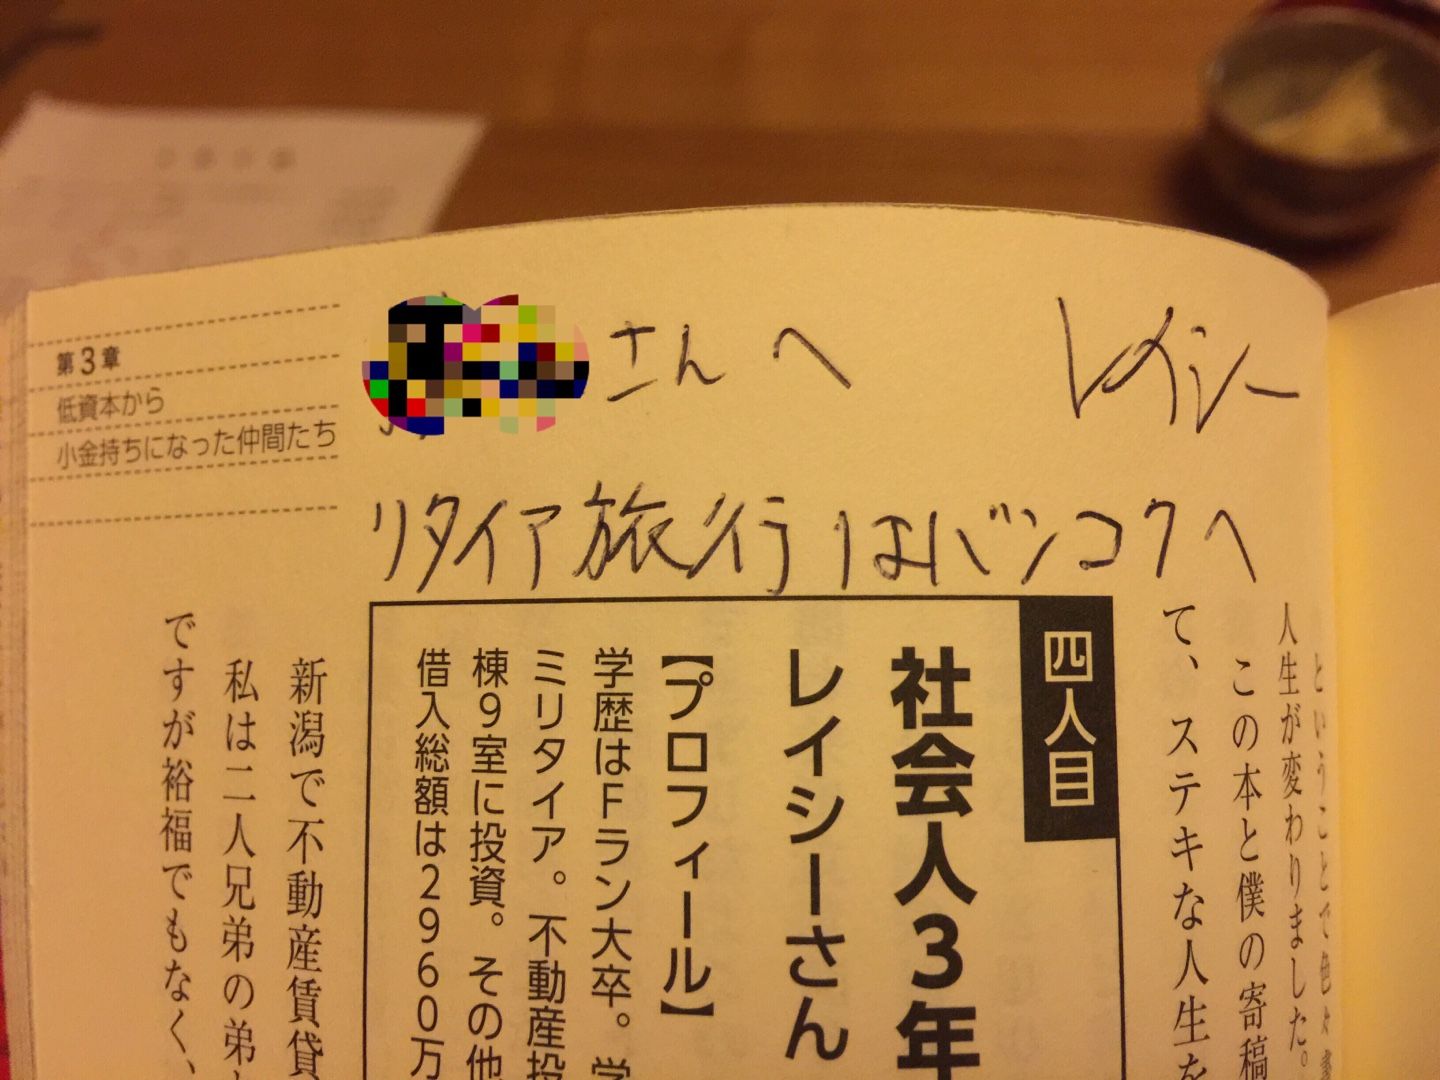 第3章
低資本から
小金持ちになった仲間たち
さんへ
レイシー
リタイア旅行はバンコクへ
人生が変わりました。
この本と僕の寄稿
て、ステキな人生を
四人目
社会人3年
レイシーさん
【プロフィール】
学歴はFラン大卒。学
ミリタイア。不動産投
棟9室に投資。その他
借入総額は2960万
新潟で不動産賃貸
私は二人兄弟の弟
ですが裕福でもなく、